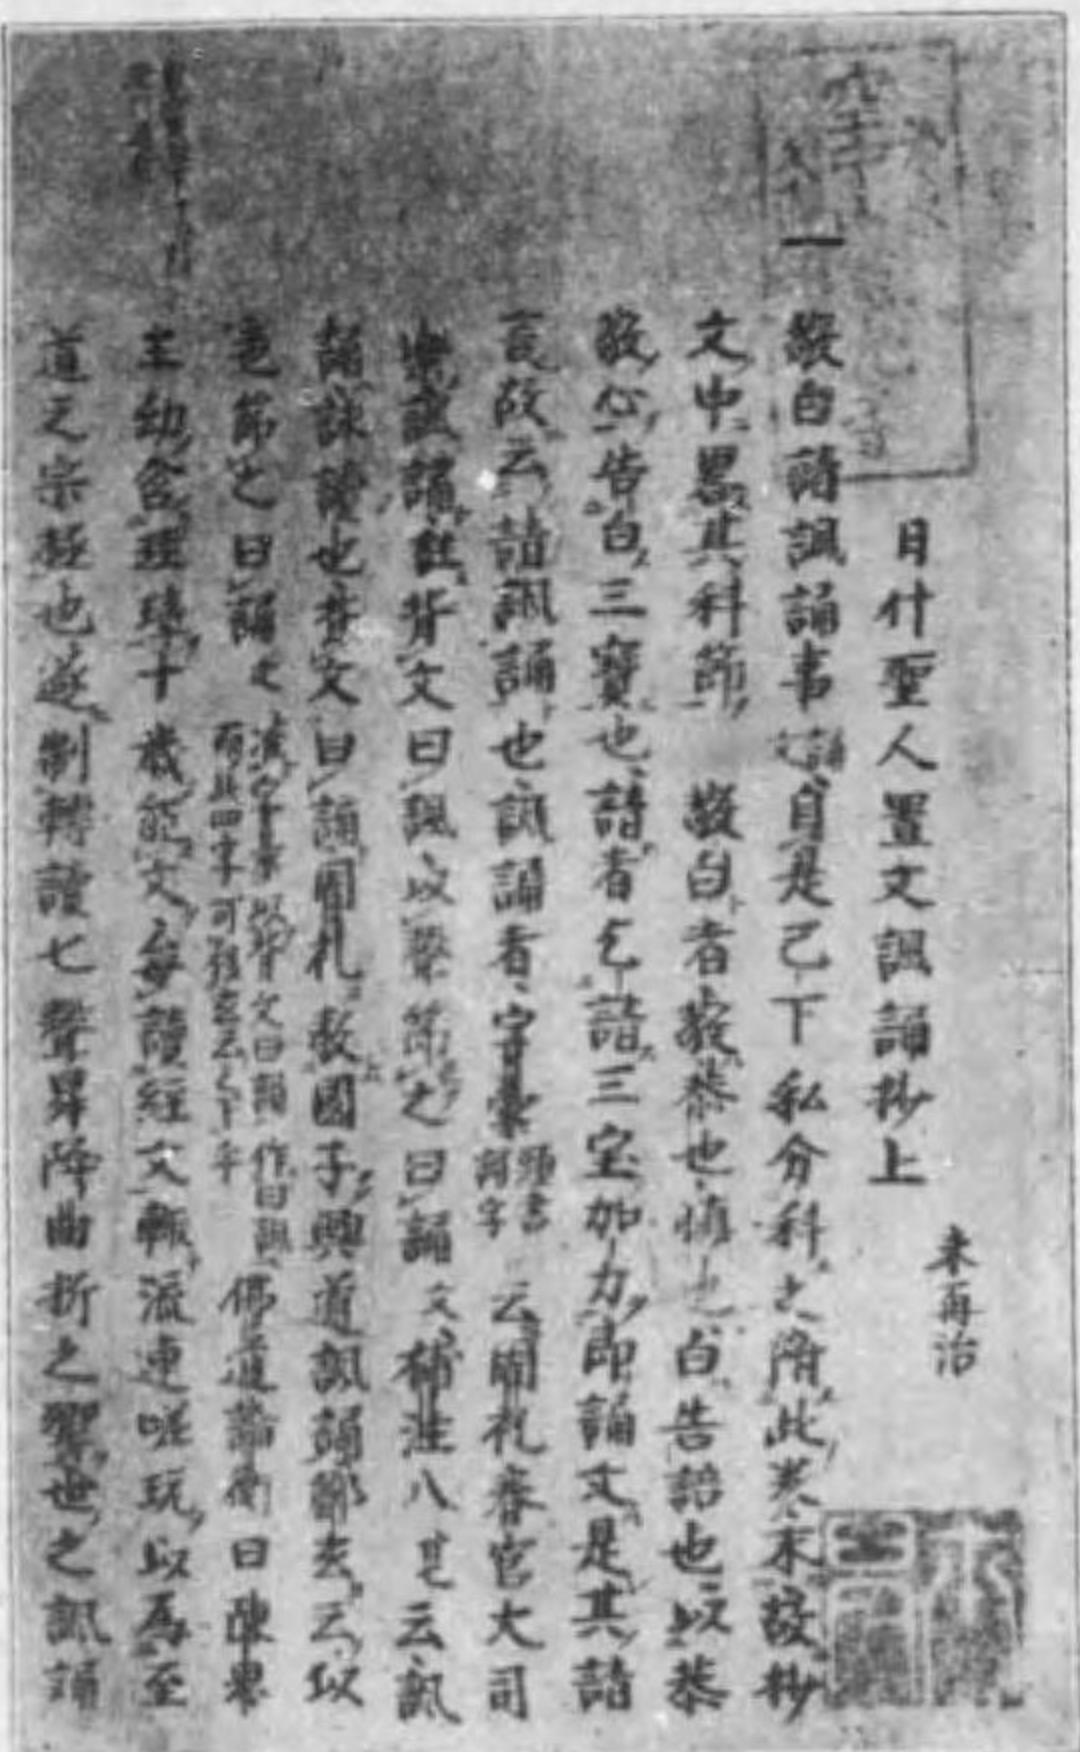 日什聖人置文諷誦抄上
未再治
一
敬白請諷誦事 自是已下私分科之隋此巻末故抄
文中畧其科節 敬白者敬恭也慎也白告語也以恭
敬心告白三寶也請者乞請三宝加力即誦文是其請
言故云請諷誦也諷誦者字彙 云周礼春官大司
樂 諷誦註背文曰諷以聲節之曰誦又補註八 云諷
誦詠讀也背文曰誦周礼教国子興道諷誦鄭玄云以
声節之曰誦之 佛道論衡曰陳思
王幼含珪璋十歳能文毎讀経文輙流連嗟玩以為至
道之宗極也遂制轉讀七聲昇降曲折之響世之諷誦